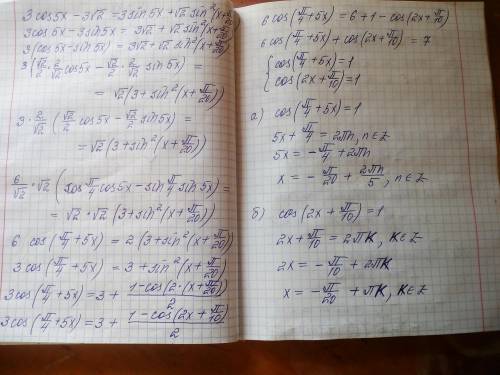 3cos5x − 3√2 = 3sin5x + √2 sin²(x+π/20)
3cos5x − 3sin5x = 3√2 + √2 sin²(x+π/20)
3(cos5x − sin5x) = 3√2 + √2 sin²(x+π/20)
3(√2/2 · 2/√2 cos5x − √2/2 · 2/√2 sin5x) =
= √2(3+sin²(x+π/20))
3·2/√2 (√2/2 cos5x − √2/2 sin5x) =
= √2(3+sin²(x+π/20))
6/√2 · √2 (cos π/4 cos5x − sin π/4 sin5x) =
= √2·√2 (3+sin²(x+π/20))
6 cos(π/4+5x) = 2(3+sin²(x+π/20))
3cos(π/4+5x) = 3+sin²(x+π/20)
3cos(π/4+5x) = 3 + (1−cos(2·(x+π/20)))/2
3cos(π/4+5x) = 3 + (1−cos(2x+π/10))/2
6cos(π/4+5x) = 6+1−cos(2x+π/10)
6cos(π/4+5x)+cos(2x+π/10) = 7
{cos(π/4+5x)=1
cos(2x+π/10)=1
а) cos(π/4+5x)=1
5x+π/4=2πn, n∈Z
5x=−π/4+2πn
x=−π/20+2πn/5, n∈Z
б) cos(2x+π/10)=1
2x+π/10=2πK, K∈Z
2x=−π/10+2πK
x=−π/20+πK, K∈Z